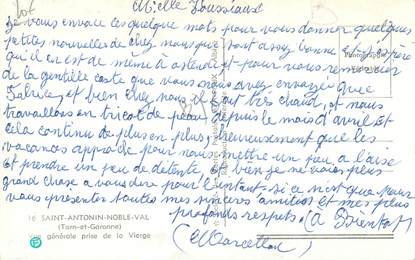 Mielle Loussiaux
je vous envoie ces quelques mots pour vous donner quelques
petites nouvelles de chez nous qui sont assez bonne et j'espère
qu'il en est de même à et pour vous remercier
de la gentille carte que vous nous avez envoyée que
et bien chez nous il fait très chaud, et nous
travaillons en tricot de peau depuis le mois d'avril et
cela continue de plus en plus, heureusement que les
vacances approche pour nous mettre un peu a l'aise
et prendre un peu de détente et bien je ne vois plus
grand chose a vous dire pour l'instant si ce n'est que pour
vous présenter toutes mes sincères amitiés et mes plus
profonds respects. (a Bientot)
(Marcellou)
16 SAINT-ANTONIN-NOBLE-VAL
(Tarn-et-Garonne)
Vue générale prise de la Vierge